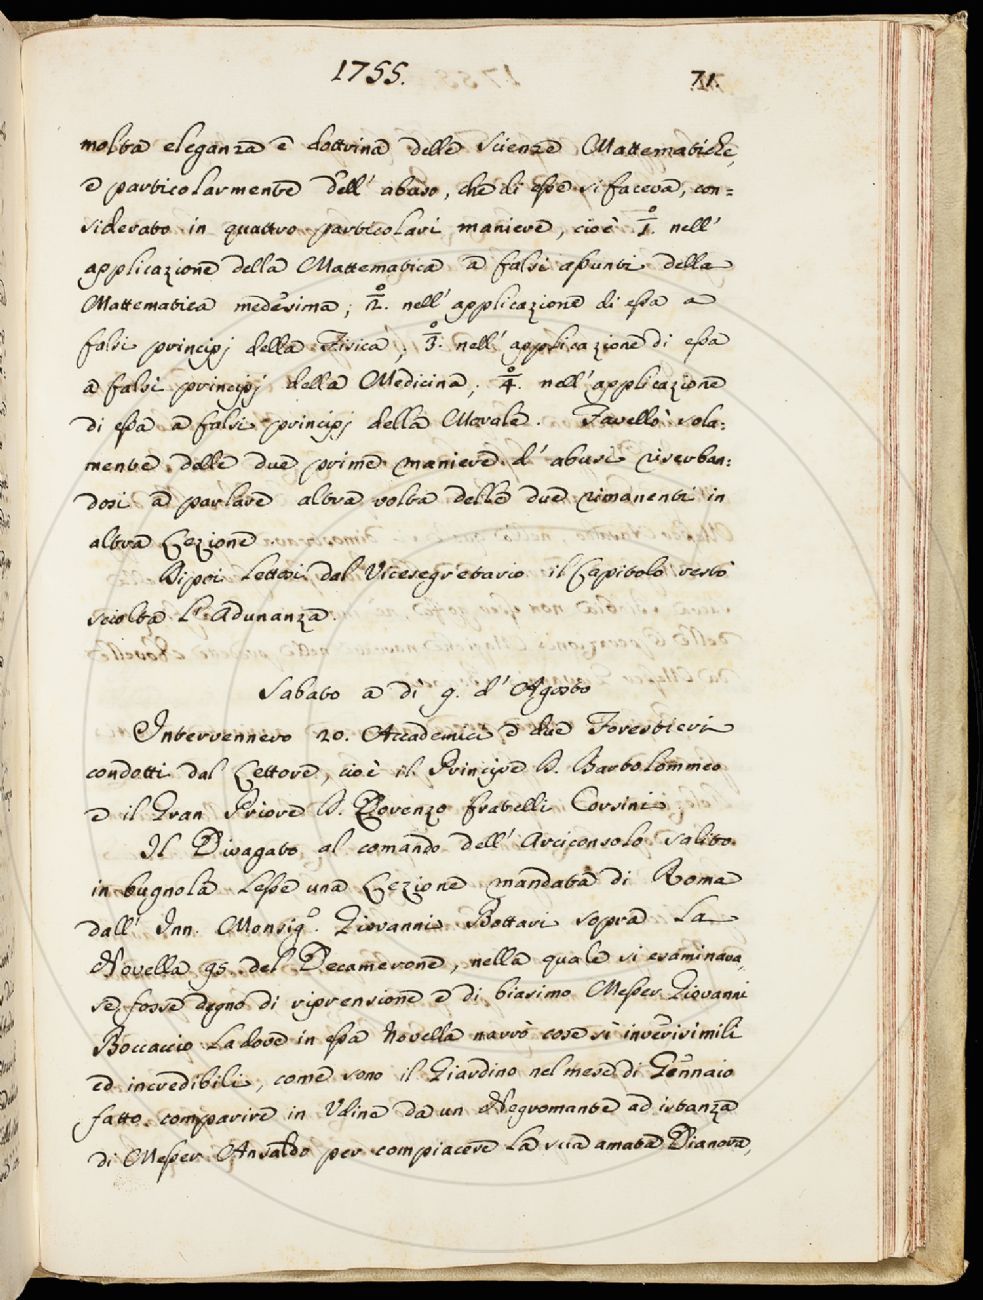 1755.
71.
molta eleganza e dottrina delle scienze Mattematiche,
e particolarmente dell' abuso, che di esse si faceva, con=
siderato in quattro particolari maniere, cioè 1.° nell'
applicazione della Mattematica a falsi assunti della
Mattematica medesima; 2.° nell' applicazione di essa a
falsi principj della Fisica; 3.° nell' applicazione di essa
a falsi principj della Medicina; 4.° nell' applicazione
di essa a falsi principj della Morale. Favellò sola=
mente delle due prime maniere d' abusi riserban=
dosi a parlare altra volta delle due rimanenti in
altra Lezione
Dipoi Lettosi dal Vicesegretario il Capitolo restò
sciolta L' Adunanza.
Sabato a dì 9. d' Agosto
Intervennero 20. Accademici e due Forestieri
condotti dal Lettore, cioè il Principe D. Bartolommeo
e il Gran Priore D. Lorenzo fratelli Corsini.
Il Divagato al comando dell' Arciconsolo salito
in bugnola Lesse una Lezione mandata di Roma
dall' Inn. Monsig.° Giovanni Bottari sopra La
Novella 95. del Decamerone, nella quale si esaminava,
se fosse degno di riprensione e di biasimo Messer Giovanni
Boccaccio Ladove in essa Novella narrò cose sì inverisimili
ed incredibili, come sono il Giardino nel mese di Gennaio
fatto comparire in Udine da un Negromante ad istanza
di Messer Ansaldo per compiacere La sua amata Dianora,